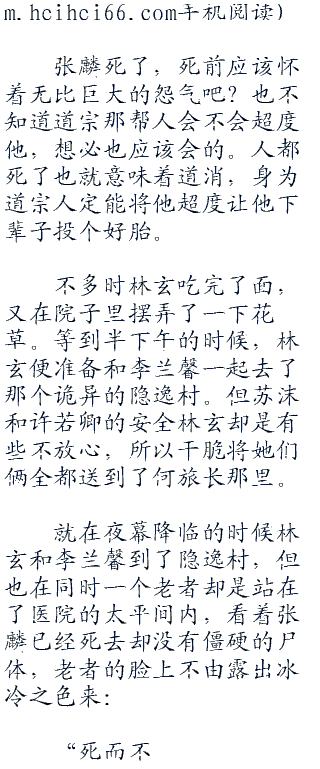 m.hcihci66.com手机阅读)
张麟死了，死前应该怀
着无比巨大的怨气吧？也不
知道道宗那帮人会不会超度
他，想必也应该会的。人都
死了也就意味着道消，身为
道宗人定能将他超度让他下
辈子投个好胎。
不多时林玄吃完了面，
又在院子里摆弄了一下花
草。等到半下午的时候，林
玄便准备和李兰馨一起去了
那个诡异的隐逸村。但苏沫
和许若卿的安全林玄却是有
些不放心，所以干脆将她们
俩全都送到了何旅长那里。
就在夜幕降临的时候林
玄和李兰馨到了隐逸村，但
也在同时一个老者却是站在
了医院的太平间内，看着张
麟已经死去却没有僵硬的尸
体，老者的脸上不由露出冰
冷之色来：
“死而不